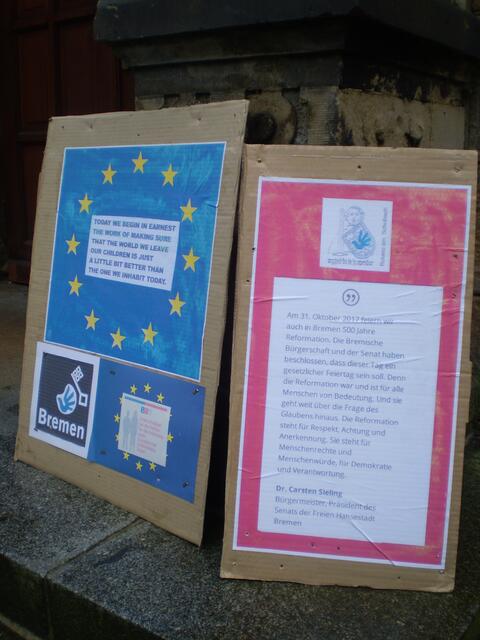 TODAY WE BEGIN IN EARNEST
THE WORK OF MAKING SURE
THAT THE WORLD WE LEAVE
OUR CHILDREN IS JUST
A LITTLE BIT BETTER THAN
THE ONE WE INHABIT TODAY.
Bremen
Am 31. Oktober 2017 feiern wir
auch in Bremen 500 Jahre
Reformation. Die Bremische
Bürgerschaft und der Senat haben
beschlossen, dass dieser Tag ein
gesetzlicher Feiertag sein soll. Denn
die Reformation war und ist für alle
Menschen von Bedeutung. Und sie
geht weit über die Frage des
Glaubens hinaus. Die Reformation
steht für Respekt, Achtung und
Anerkennung. Sie steht für
Menschenrechte und
Menschenwürde, für Demokratie
und Verantwortung.
Dr. Carsten Sieling
Bürgermeister, Präsident des
Senats der Freien Hansestadt
Bremen